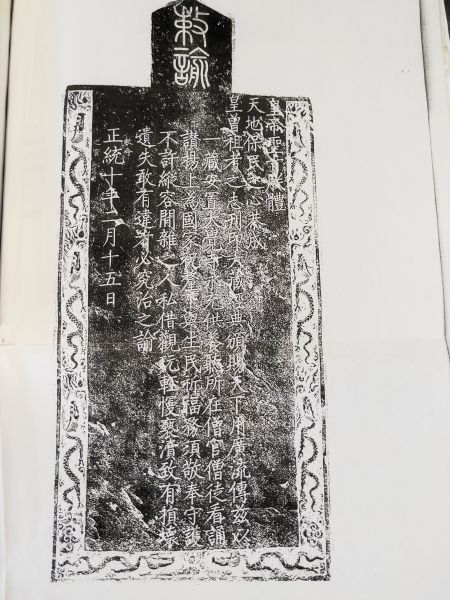 敕諭
皇帝聖旨朕體
天地保民之心恭成
皇曾祖考之志刊印大藏經典頒賜天下用廣流傳茲以
一藏安置太寺永充供養聽所在僧官僧徒看誦
讚揚上為國家祝釐下與生民祈福務須敬奉守護
不許縱容閒雜之人私借觀玩輕慢褻瀆致有損壞
遺失敢有違者必究治之諭
正統十年二月十五日